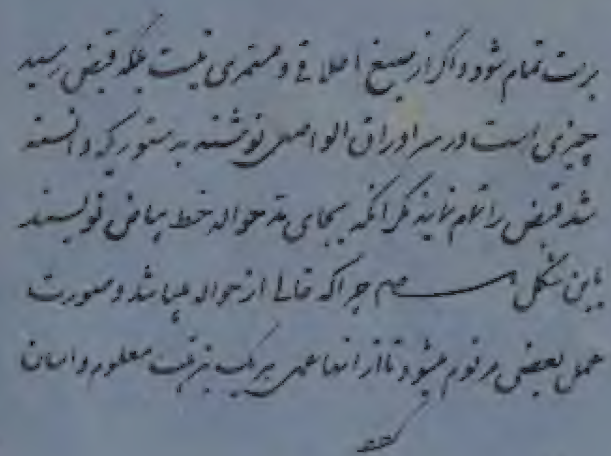 برات تمام شود و اگر از صیغ اطلاقی و مستمری نیست بلکه قبض رسید
چیزی است در سر اوراق نوشته بدستور که دانسته
شد قبض را تمام نمایند مگر آنکه بجای مد حواله خط بیاض نویسند
باین شکل چرا که خالی از حواله میباشد و صورت
عمل بعضی مرقوم میشود تا از آنها عمل هر یک بترتیب معلوم و آسان
گردد